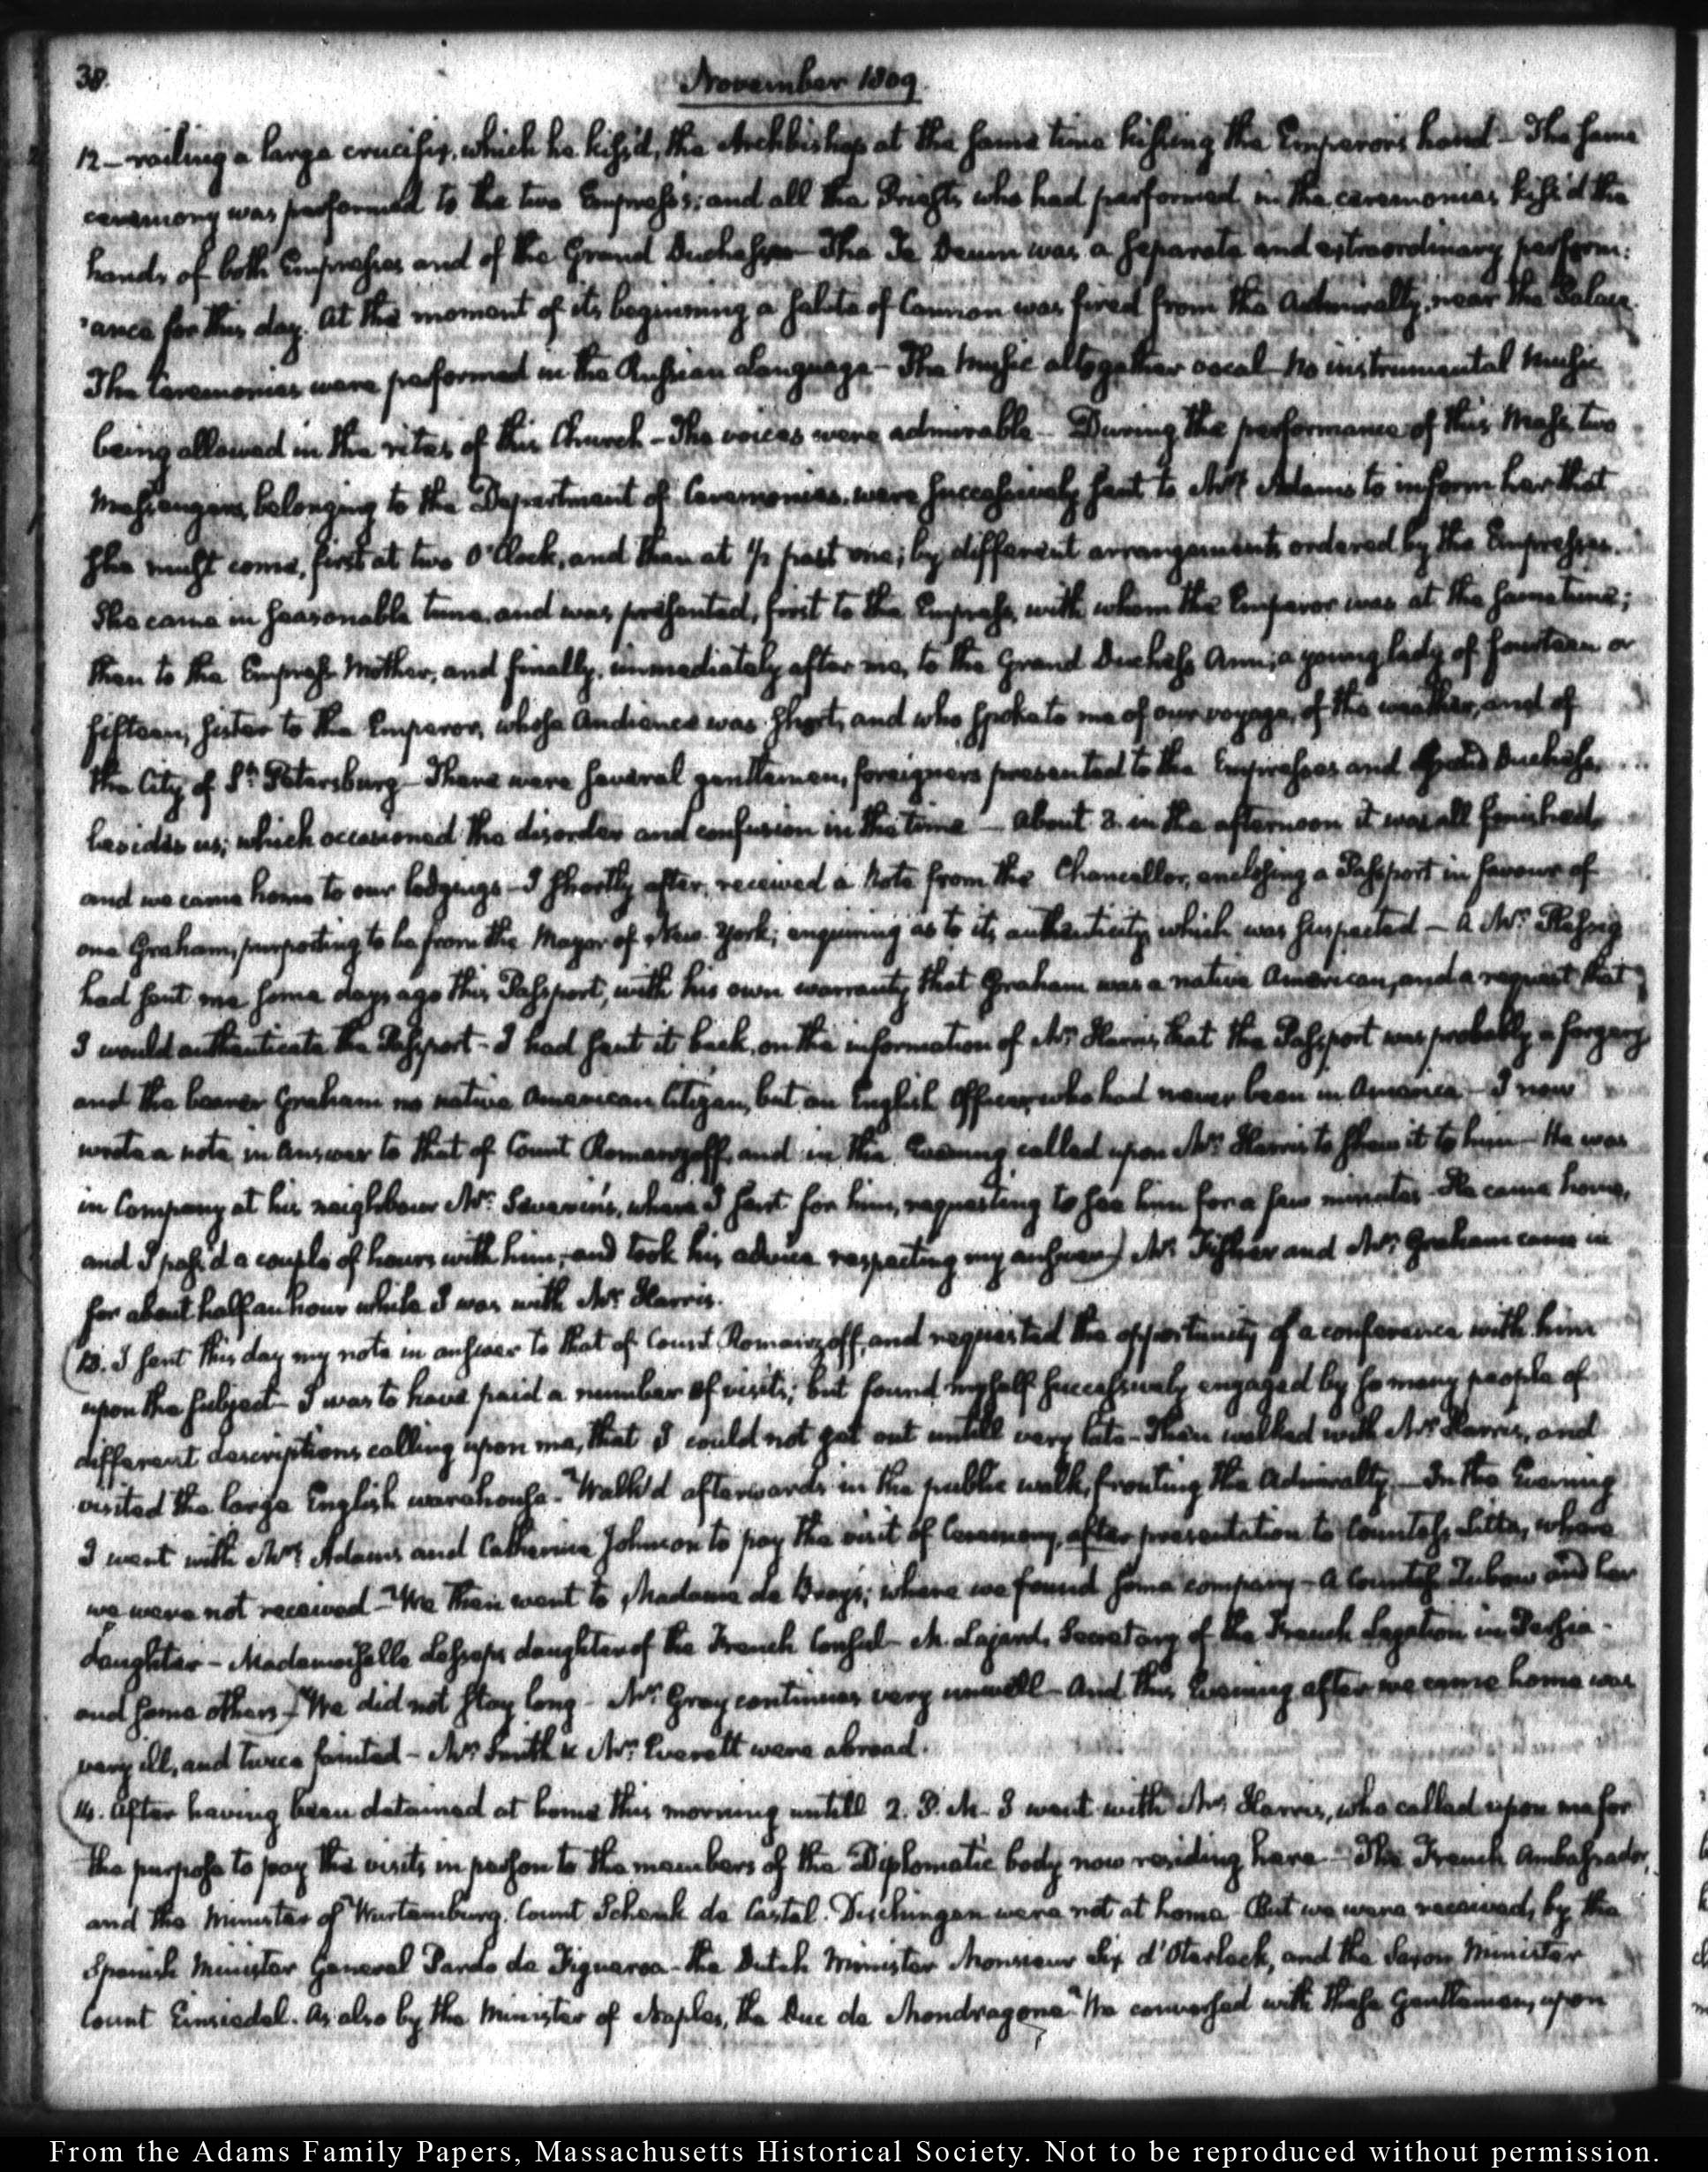 38.
November 1809.
12 — railing a large crucifix, which he kiss'd, the Archbishop at the same time kissing the Emperor's hand — The same
ceremony was performed to the two Empress's; and all the Priests who had performed in the ceremonies kiss'd the
hands of both Empresses and of the Grand Duchess — The Te Deum was a separate and extraordinary perform:
:ance for this day. At the moment of its beginning a salute of Cannon was fired from the Admiralty, near the Palace.
The Ceremonies were performed in the Russian Language — The Music altogether vocal — no instrumental Music
being allowed in the rites of this Church — The voices were admirable — During the performance of this Mass, two
Messengers, belonging to the Department of Ceremonies, were successively sent to Mrs. Adams to inform her that
she must come, first at two O'Clock, and then at 1/2 past one; by different arrangements ordered by the Empresses.
She came in seasonable time, and was presented, first to the Empress, with whom the Emperor was at the same time;
then to the Empress Mother, and finally, immediately after me, to the Grand Duchess Ann; a young lady of fourteen or
fifteen, sister to the Emperor, whose Audience was short, and who spoke to me of our voyage, of the weather, and of
the City of St. Petersburg — There were several gentlemen, foreigners presented to the Empresses and Grand Duchess,
besides us; which occasioned the disorder and confusion in the time — About 3 in the afternoon it was all finished,
and we came home to our lodgings — I shortly after, received a Note from the Chancellor, enclosing a Passport in favour of
one Graham, purporting to be from the Mayor of New-York; enquiring as to its authenticity, which was suspected — A Mr.
had sent me some days ago this Passport, with his own warranty that Graham was a native American, and a request that
I would authenticate the Passport — I had sent it back, on the information of Mr. Harris, that the Passport was probably a forgery
and the bearer Graham no native American Citizen, but an English Officer, who had never been in America — I now
wrote a note in answer to that of Count Romanzoff, and in the Evening called upon Mr. Harris to shew it to him — He was
in Company at his neighbour Mr. Severin's, where I sent for him, requesting to see him for a few minutes — He came home,
and I pass'd a couple of hours with him, and took his advice respecting my answer) Mr. Fisher and Mr. Graham came in
for about half an hour while I was with Mr. Harris.
13. I sent this day my note in answer to that of Count Romanzoff, and requested the opportunity of a conference with him
upon the subject — I was to have paid a number of visits; but found myself successively engaged by so many people of
different descriptions calling upon me, that I could not get out untill very late — Then walked with Mr. Harris, and
visited the large English warehouse — Walk'd afterwards in the public walk, fronting the Admiralty — In the Evening
I went with Mrs. Adams and Catherine Johnson to pay the visit of Ceremony, after presentation to Countess Litta, where
we were not received — We then went to Madame de Bray's; where we found some company — A Countess and her
daughter — Mademoiselle Lesseps daughter of the French Consul — M. Lajard, Secretary of the French Legation in Persia —
and some others — We did not stay long — Mr. Gray continues very unwell — And this Evening after we came home was
very ill, and twice fainted — Mr. Smith & Mr. Everett were abroad.
14. After having been detained at home this morning untill 2. P. M. I went with Mr. Harris, who called upon me for
the purpose to pay the visits in person to the members of the Diplomatic body now residing here — The French Ambassador,
and the Minister of Wurtemburg, Count Schenk de Castel-Dischingen were not at home — But we were received, by the
Spanish Minister General Pardo de Figueroa — the Dutch Minister Monsieur Six d'Oterbeck, and the Saxon Minister
Count Einsiedel. As also by the Minister of Naples, the Duc de Mondragone. We conversed with these Gentlemen, upon
From the Adams Family Papers, Massachusetts Historical Society. Not to be reproduced without permission.